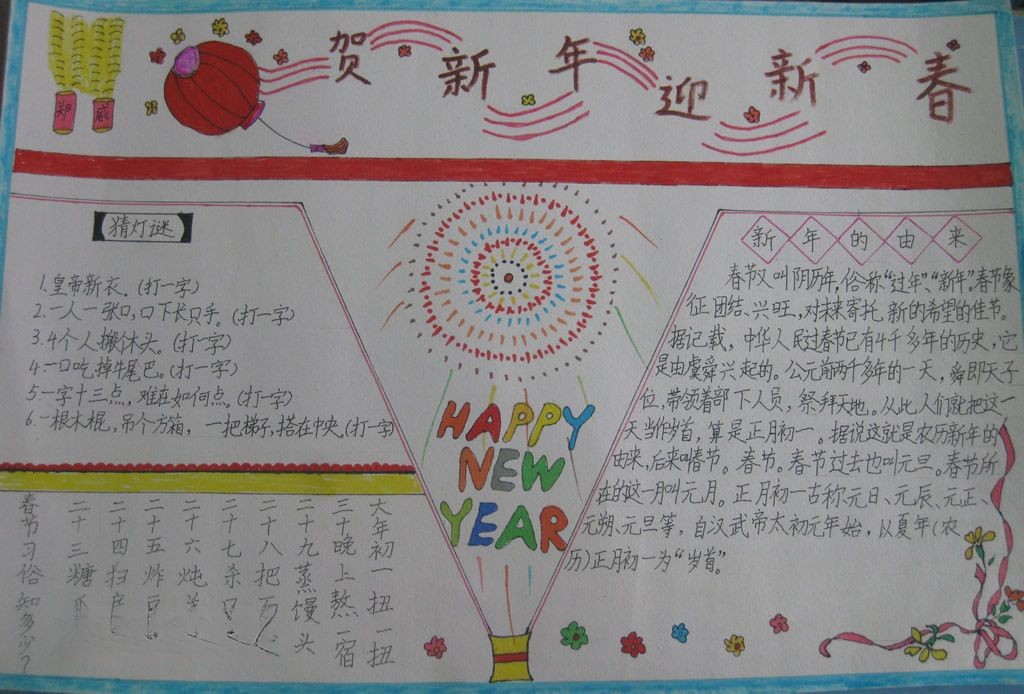 郑 威
贺新年迎新春
猜灯谜
1.皇帝新衣。(打一字)
2.一人一张口,口下长只手。(打一字)
3.4个人搬木头。(打一字)
4.一口吃掉牛尾巴。(打一字)
5.一字十三点,难在如何点。(打一字)
6.一根木棍,吊个方箱,一把梯子,搭在中央.(打一字)
HAPPY
NEW
YEAR
新年的由来
春节又叫阴历年,俗称“过年”、“新年”,春节象
征团结、兴旺,对未来寄托新的希望的佳节。
据记载,中华人民过春节已有4千多年的历史,它
是由虞舜兴起的。公元前两千多年的一天,舜即天子
位,带领着部下人员,祭拜天地。从此人们就把这一
天当作岁首,算是正月初一。据说这就是农历新年的
由来,后来叫春节。春节。春节过去也叫元旦。春节所
在的这一月叫元月。正月初一古称元日、元辰、元正、
元朔、元旦等,自汉武帝太初元年始,从夏年(农
历)正月初一为“岁首”。
春节习俗知多少?
二十三糖
二十四扫
二十五炸豆
二十六炖
二十七杀
二十八把
二十九蒸馒头
三十晚上熬一宿
大年初一扭一扭